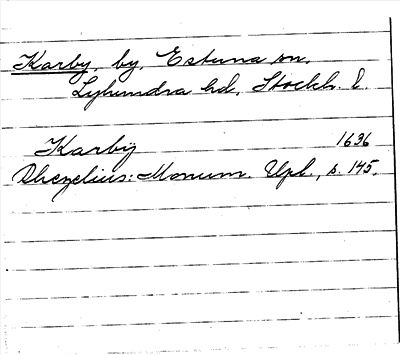 Karby, by, Estuna sn,
Lyhundra hd, Stockh. l.
Karbÿ 1636
Rhezelius: Monum. Upl., s. 145.